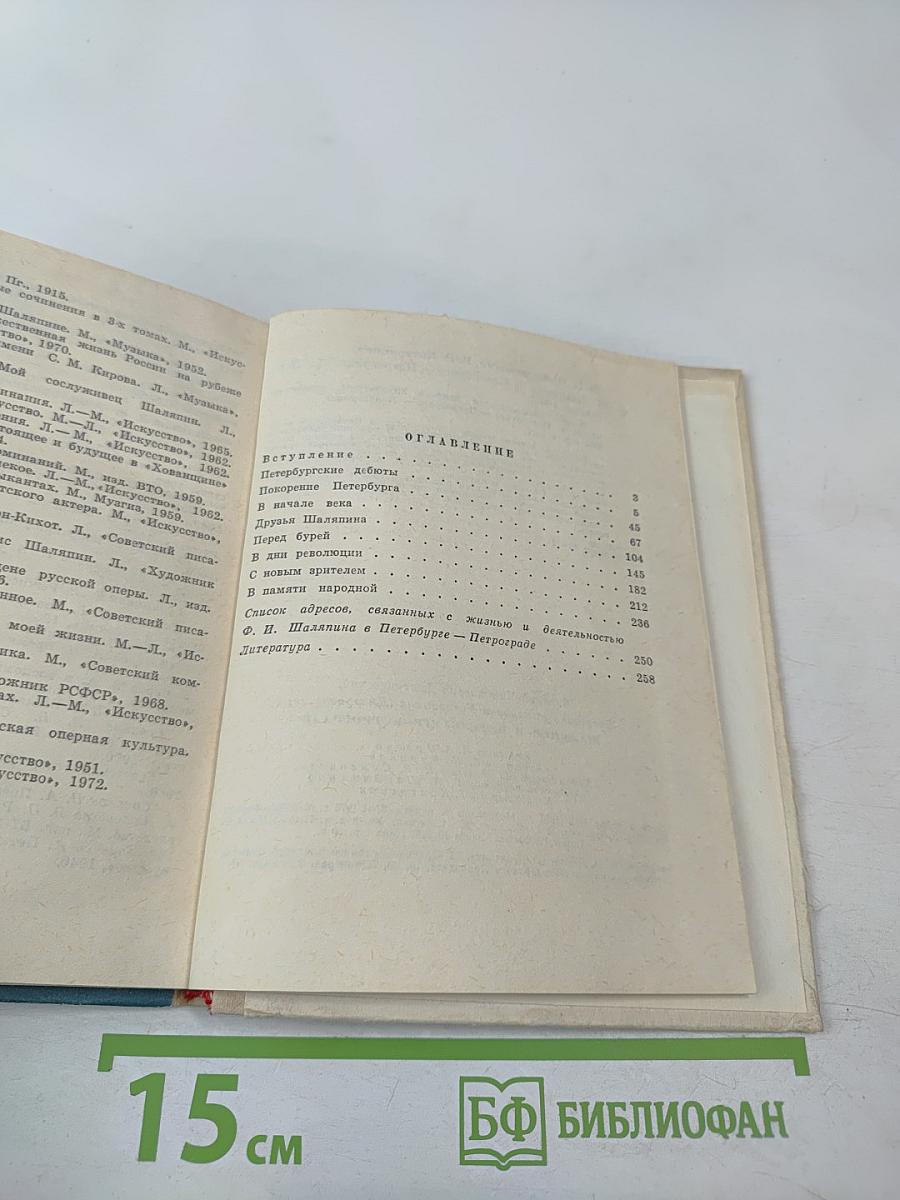 Пг., 1915.
ые сочинения в 3-х томах. М., «Искус-
Шаляпине. М., «Музыка», 1952.
ественная жизнь России на рубеже
тво», 1970.
имени С. М. Кирова. Л., «Музыка»,
Мой сослуживец Шаляпин. Л.,
инания. Л.—М., «Искусство», 1965.
усство. М.—Л., «Искусство», 1962.
ния. Л.—М., «Искусство», 1962.
тоящее и будущее в «Хованщине»
4.
оминаний. М., изд. ВТО, 1959.
ское. Л.—М., «Искусство», 1962.
ыкантах. М., Музгиз, 1959.
тского актера. М., «Искусство»,
он-Кихот. Л., «Советский писа-
ис Шаляпин. Л., «Художник
цене русской оперы. Л., изд.
6.
нное. М., «Советский писа-
моей жизни. М.—Л., «Ис-
ика. М., «Советский ком-
ожник РСФСР», 1968.
ах. Л.—М., «Искусство»,
ская оперная культура.
усство», 1951.
усство», 1972.
ОГЛАВЛЕНИЕ
Вступление . . . 3
Петербургские дебюты . . . 5
Покорение Петербурга . . . 45
В начале века . . . 67
Друзья Шаляпина . . . 104
Перед бурей . . . 145
В дни революции . . . 182
С новым зрителем . . . 212
В памяти народной . . . 236
Список адресов, связанных с жизнью и деятельностью
Ф. И. Шаляпина в Петербурге — Петрограде . . . 250
Литература . . . 258
15 см
БФ БИБЛИОФАН